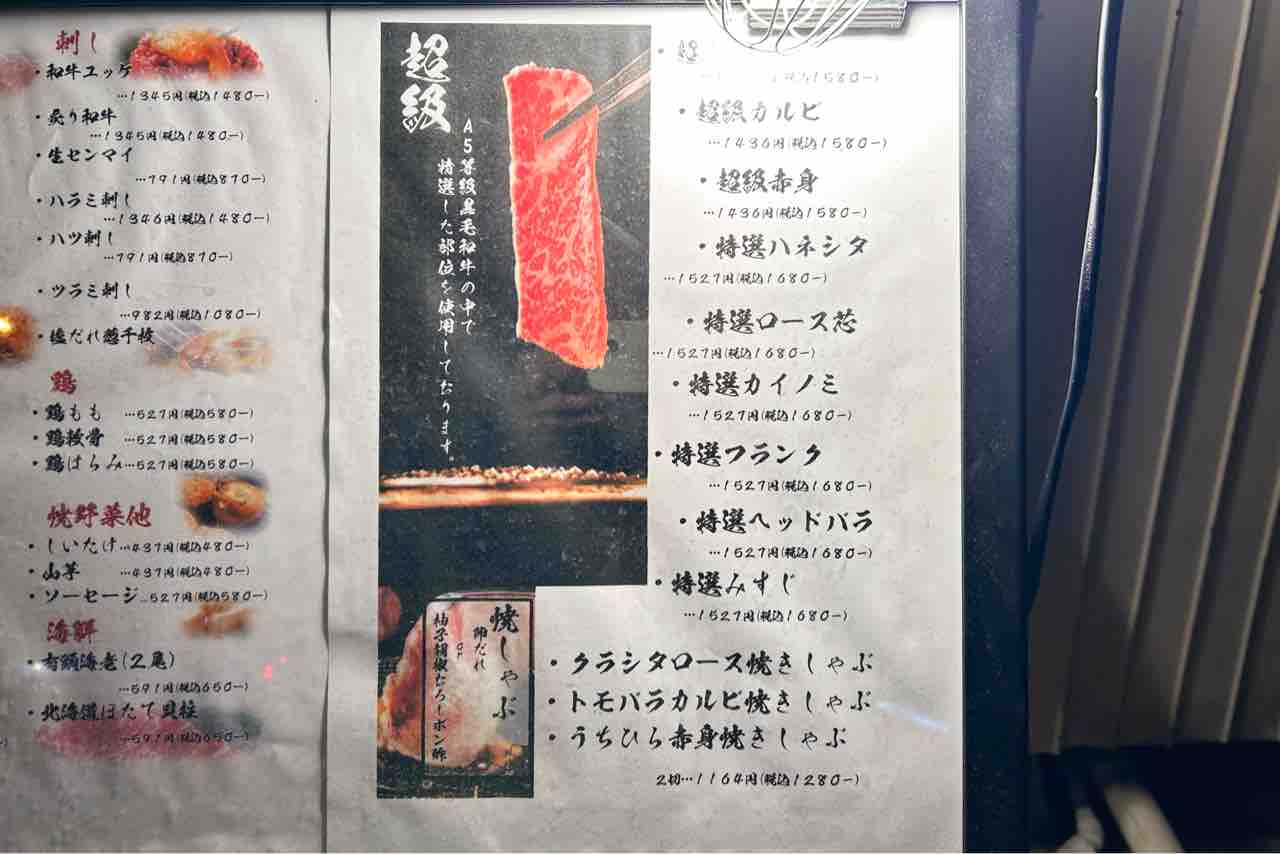 刺し
・和牛ユッケ
…1345円(税込1480ー)
・炙り和牛
…1345円(税込1480ー)
・生センマイ
…791円(税込870ー)
・ハラミ刺し
…1346円(税込1480ー)
・ハツ刺し
…791円(税込870ー)
・ツラミ刺し
…982円(税込1080ー)
・塩だれ葱千枚
鶏
・鶏もも …527円(税込580ー)
・鶏軟骨 …527円(税込580ー)
・鶏はらみ…527円(税込580ー)
焼野菜他
・しいたけ…437円(税込480ー)
・山芋 …437円(税込480ー)
・ソーセージ…527円(税込580ー)
海鮮
・有頭海老(2尾)
…591円(税込650ー)
・北海道ほたて貝柱
…591円(税込650ー)
超級
A5等級黒毛和牛の中で
特選した部位を使用しております。
焼しゃぶ
卵だれ
or
柚子胡椒おろしポン酢
税込1580ー)
・超級カルビ
…1436円(税込1580ー)
・超級赤身
…1436円(税込1580ー)
・特選ハネシタ
…1527円(税込1680ー)
・特選ロース芯
…1527円(税込1680ー)
・特選カイノミ
…1527円(税込1680ー)
・特選フランク
…1527円(税込1680ー)
・特選ヘッドバラ
…1527円(税込1680ー)
・特選みすじ
…1527円(税込1680ー)
・クラシタロース焼きしゃぶ
・トモバラカルビ焼きしゃぶ
・うちひら赤身焼きしゃぶ
2切…1164円(税込1280ー)